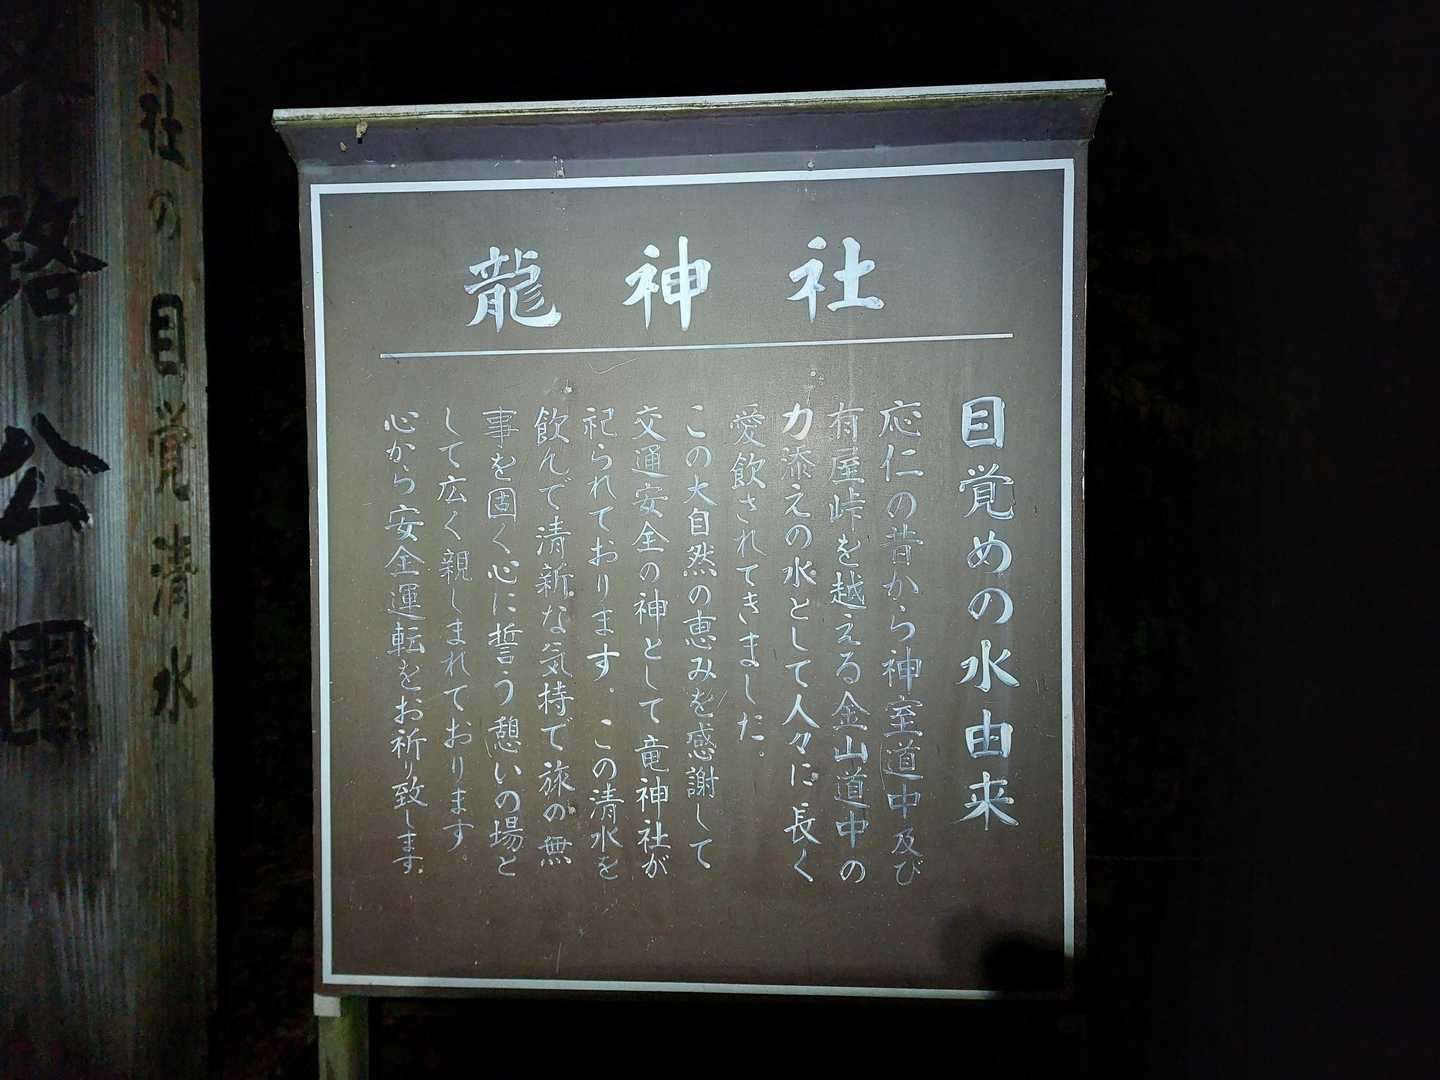 龍神社
目覚めの水由来
応仁の昔から神室道中及び
有屋峠を越える金山道中の
力添えの水として人々に長く
愛飲されてきました。
この大自然の恵みを感謝して
交通安全の神として竜神社が
祀られております。この清水を
飲んで清新な気持で旅の無
事を固く心に誓う憩いの場と
して広く親しまれております。
心から安全運転をお祈り致します。
神社の目覚清水
路公園